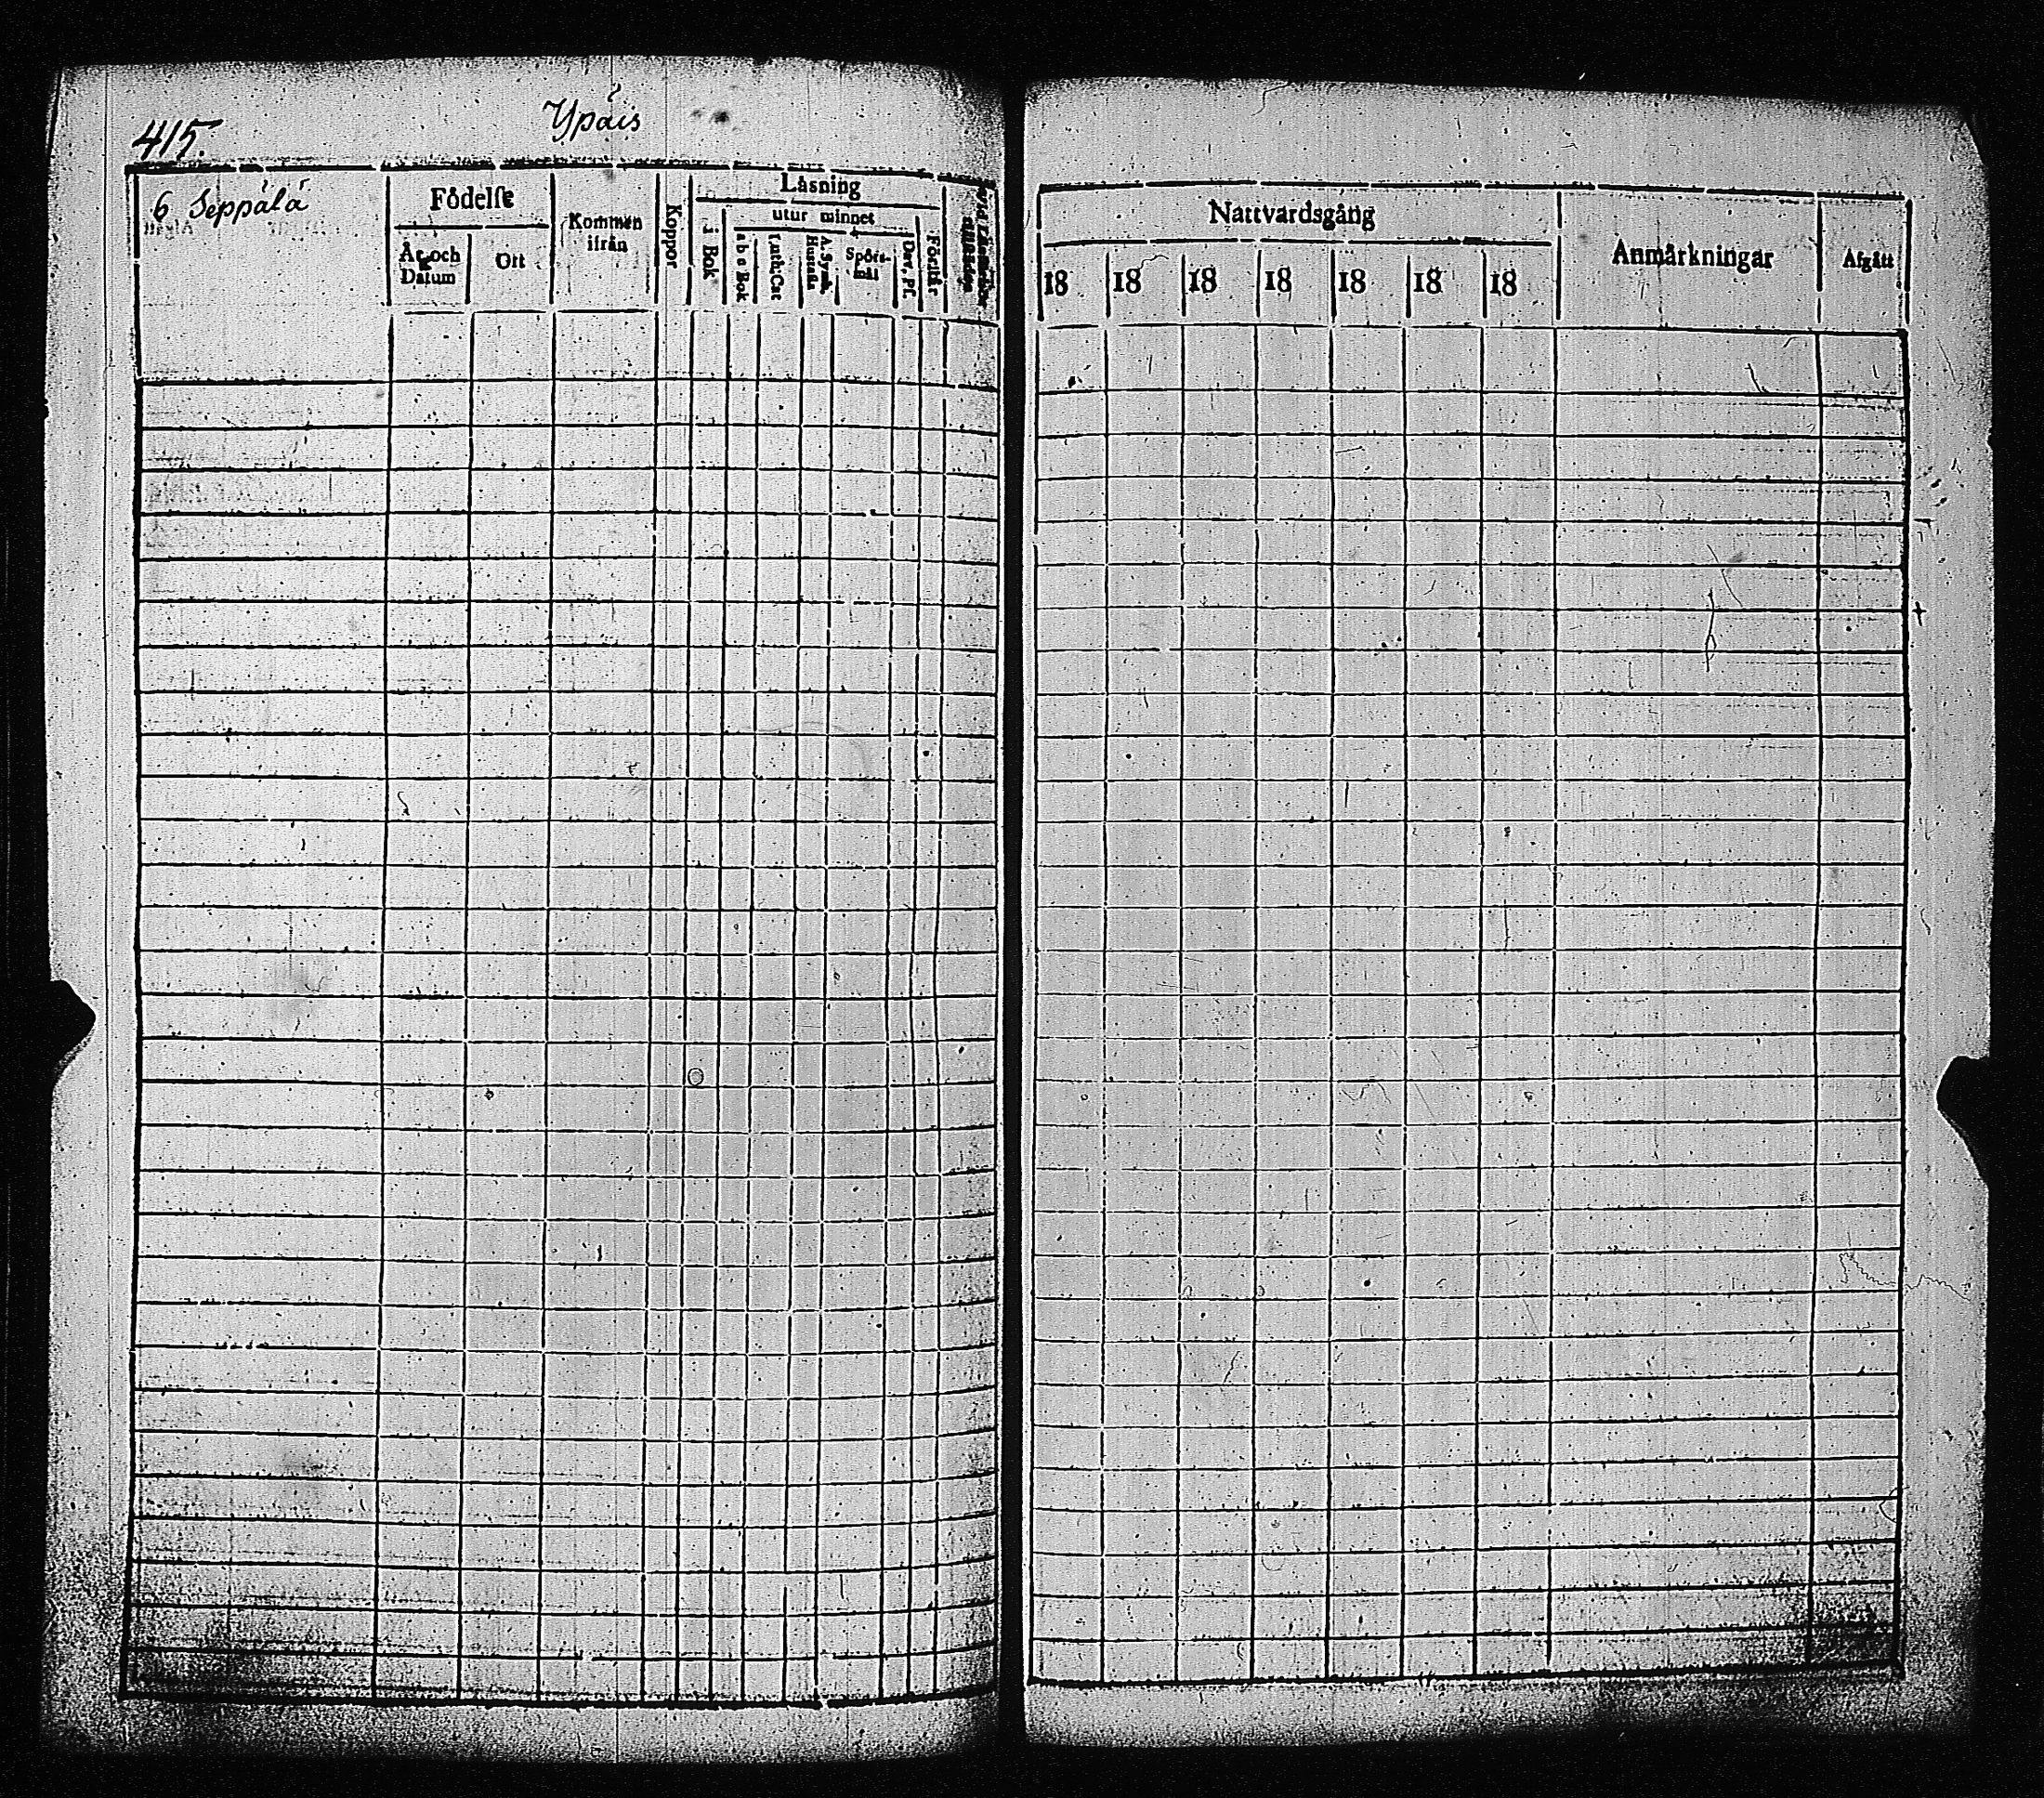 415.
Ypäis
6 Seppälä
Födelse
År och Datum
Ort
Kommen ifrån
Koppor
Läsning
i Bok
utur minnet
a b c Bok
Luth. Cat
A. Symb. Hustafla
Spörsmål
Dav. Ps.
Förstår
Nattvardsgång
18 18 18 18 18 18 18
Anmärkningar
Afgått